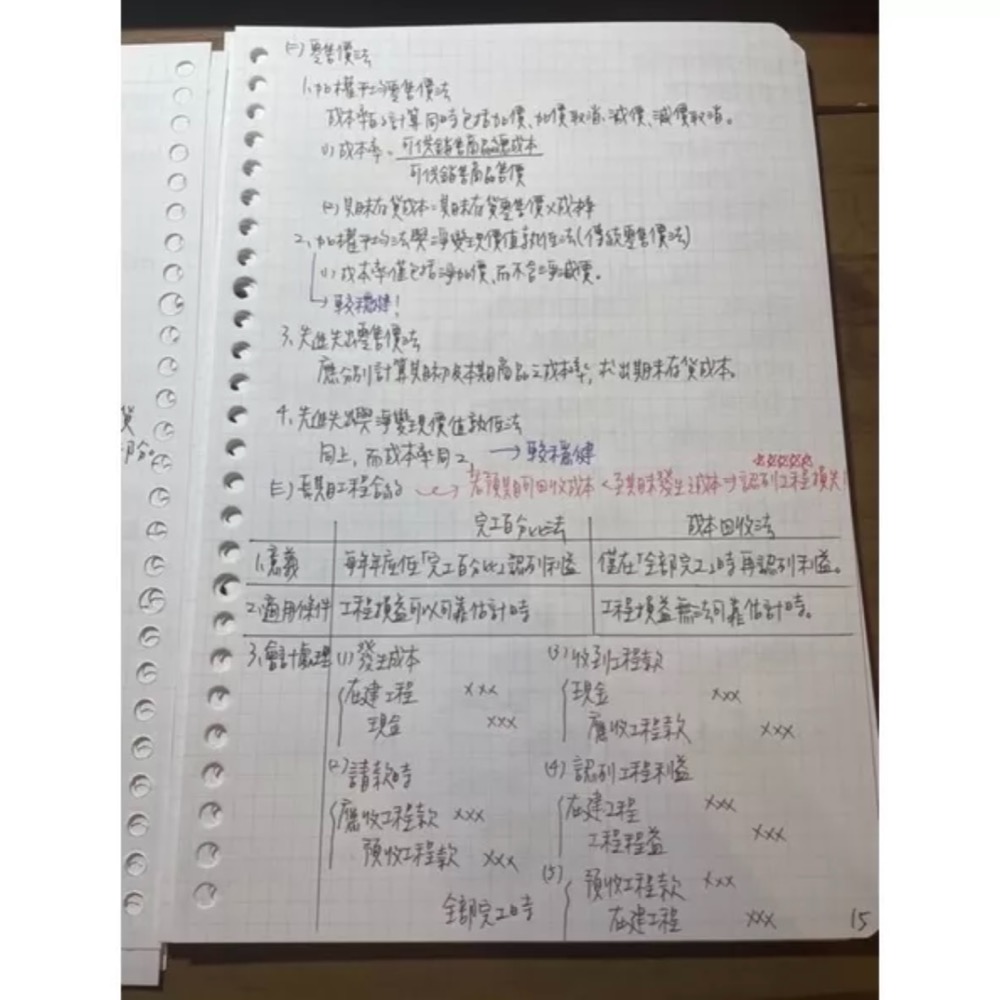 (二) 零售價法
1. 加權平均零售價法
成本率的計算同時包括加價、加價取消、減價、減價取消。
(1) 成本率 = 可供銷售商品總成本
可供銷售商品售價
(2) 期末存貨成本 = 期末存貨零售價 × 成本率
2. 加權平均法與淨變現價值孰低法(傳統零售價法)
(1) 成本率僅包括淨加價,而不含淨減價。
→ 較穩健!
3. 先進先出零售價法
應分別計算期初及本期商品之成本率,求出期末存貨成本。
4. 先進先出與淨變現價值孰低法
同上,而成本率同2 → 較穩健
(三) 長期工程合約 若預期可回收成本 < 至期末發生之成本 → 認列工程損失!
完工百分比法 成本回收法
1. 意義 每年年底依「完工百分比」認列利益 僅在「全部完工」時再認列利益。
2. 適用條件 工程損益可以可靠估計時 工程損益無法可靠估計時。
3. 會計處理 (1) 發生成本 (3) 收到工程款
在建工程 xxx 現金 xxx
現金 xxx 應收工程款 xxx
(2) 請款時 (4) 認列工程利益
應收工程款 xxx 在建工程 xxx
預收工程款 xxx 工程程益 xxx
(5) 預收工程款 xxx
全部完工時 在建工程 xxx
15
貨
部分。